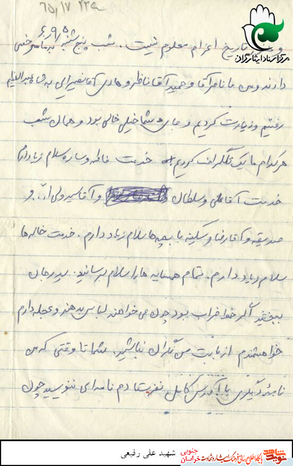 مرکز اسناد ایثارگران
۶۵/۱۷ ۲۳۹
و تاریخ اعزام معلوم نیست. شب پنج شنبه
دارند و من با نامر آقا و حمید آقا ناظر و هادی آقا نصیرایی به
رفتیم و زیارت کردیم و جای شما خیلی خالی بود و همان شب
هر کدام ما یک تلگراف کردیم خدمت فاطمه و ساره سلام زیاد دارم
خدمت آقا علی و سلطان و آقا سید ولی ا... و
صدیقه و آقا رضا و سکینه با بچه ها سلام زیاد دارم. خدمت خاله ها
سلام زیاد دارم. تمام همسایه ها را سلام برسانید. پدر جان
ببخشید اگر خط خراب بود چون می خواهند لباس بدهند و عجله دارم
خواهشمندم از بابت من نگران نباشید. شما تا وقتی که من
نامه دیگری با آدرس کامل نفرستادم نامه ای ننویسید چون
شهید علی رفیعی
خراسان جنوبی